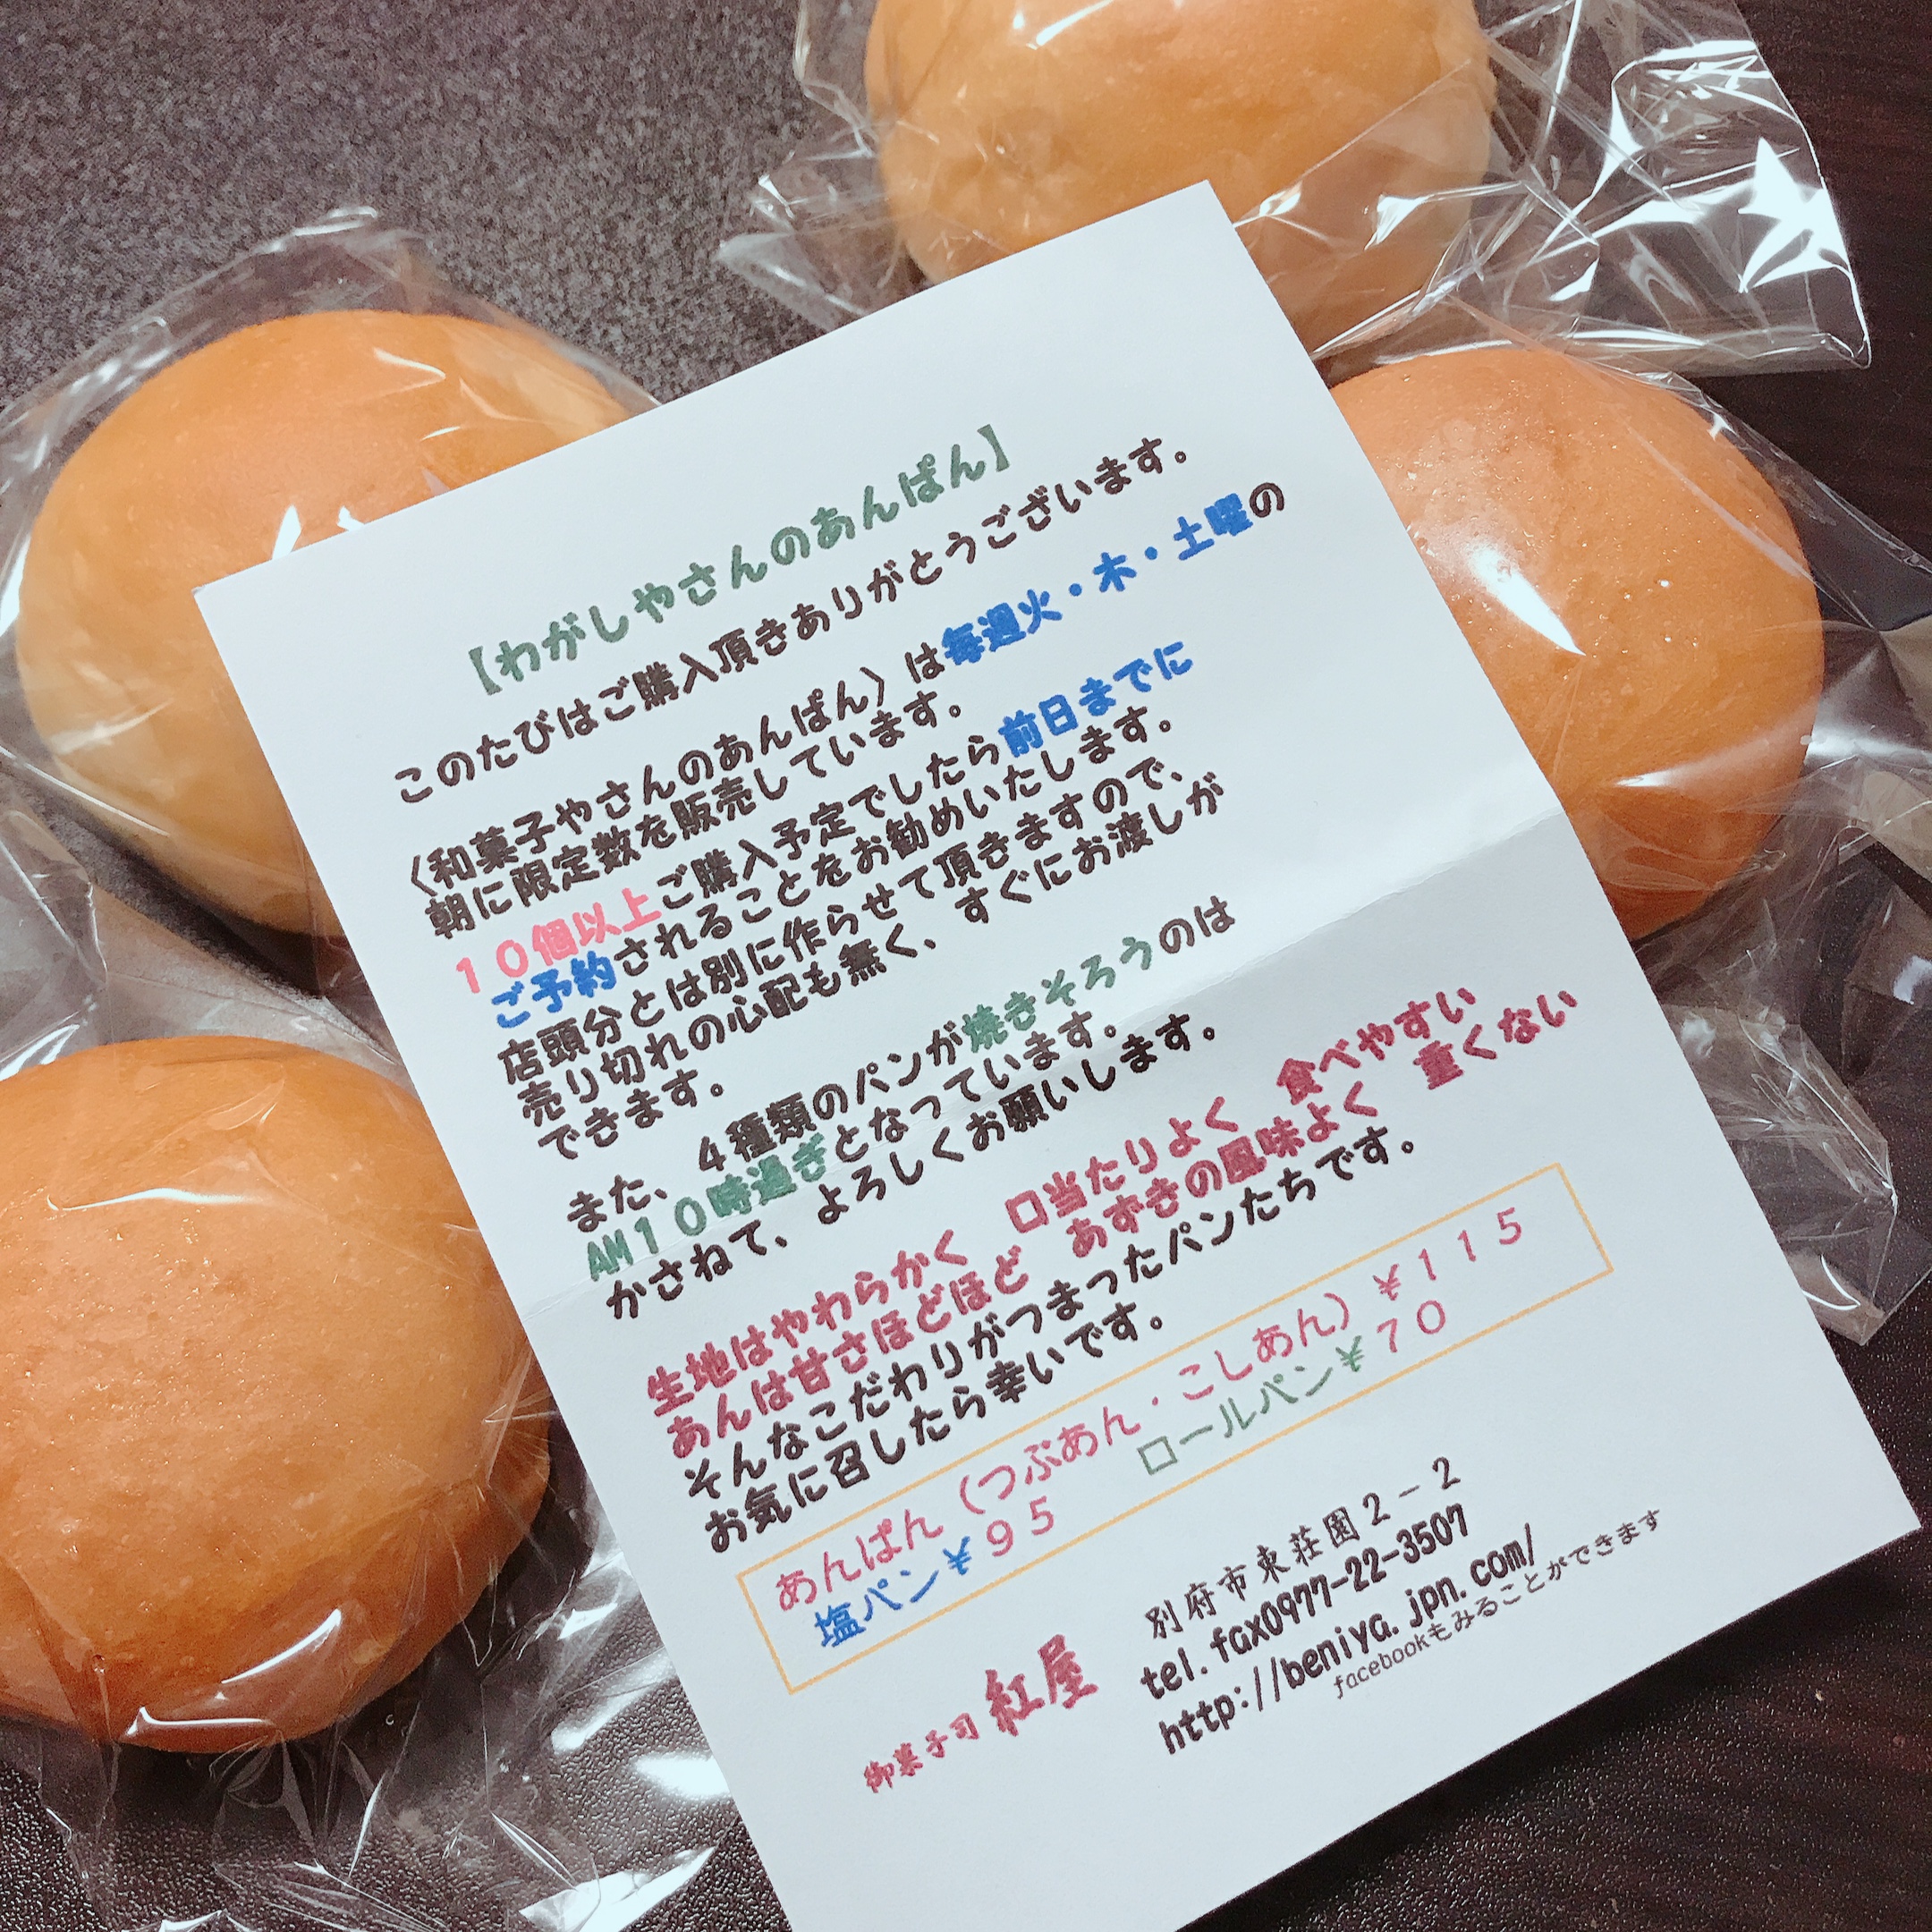 【わがしやさんのあんぱん】
このたびはご購入頂きありがとうございます。
〈和菓子やさんのあんぱん〉は毎週火・木・土曜の
朝に限定数を販売しています。
１０個以上ご購入予定でしたら前日までに
ご予約されることをお勧めいたします。
店頭分とは別に作らせて頂きますので、
売り切れの心配も無く、すぐにお渡しが
できます。
また、４種類のパンが焼きそろうのは
AM１０時過ぎとなっています。
かさねて、よろしくお願いします。
生地はやわらかく　口当たりよく　食べやすい
あんは甘さほどほど　あずきの風味よく　重くない
そんなこだわりがつまったパンたちです。
お気に召したら幸いです。
あんぱん（つぶあん・こしあん）￥１１５
塩パン￥９５　ロールパン￥７０
御菓子司 紅屋
別府市東荘園２－２
tel.fax0977-22-3507
http://beniya.jpn.com/
facebookもみることができます